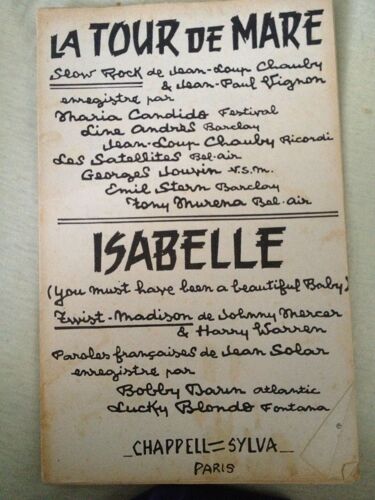 LA TOUR DE MARE
Slow Rock de Jean-Loup Chauby
& Jean-Paul Vignon
enregistré par
Maria Candido Festival
Line Andrès Barclay
Jean-Loup Chauby Ricordi
Les Satellites Bel-air
Georges Jouvin V.S.M.
Emil Stern Barclay
Tony Murena Bel-air
ISABELLE
(You must have been a beautiful Baby)
Twist-Madison de Johnny Mercer
& Harry Warren
Paroles françaises de Jean Solar
enregistré par
Bobby Darin Atlantic
Lucky Blondo Fontana
_CHAPPELL=SYLVA_
PARIS